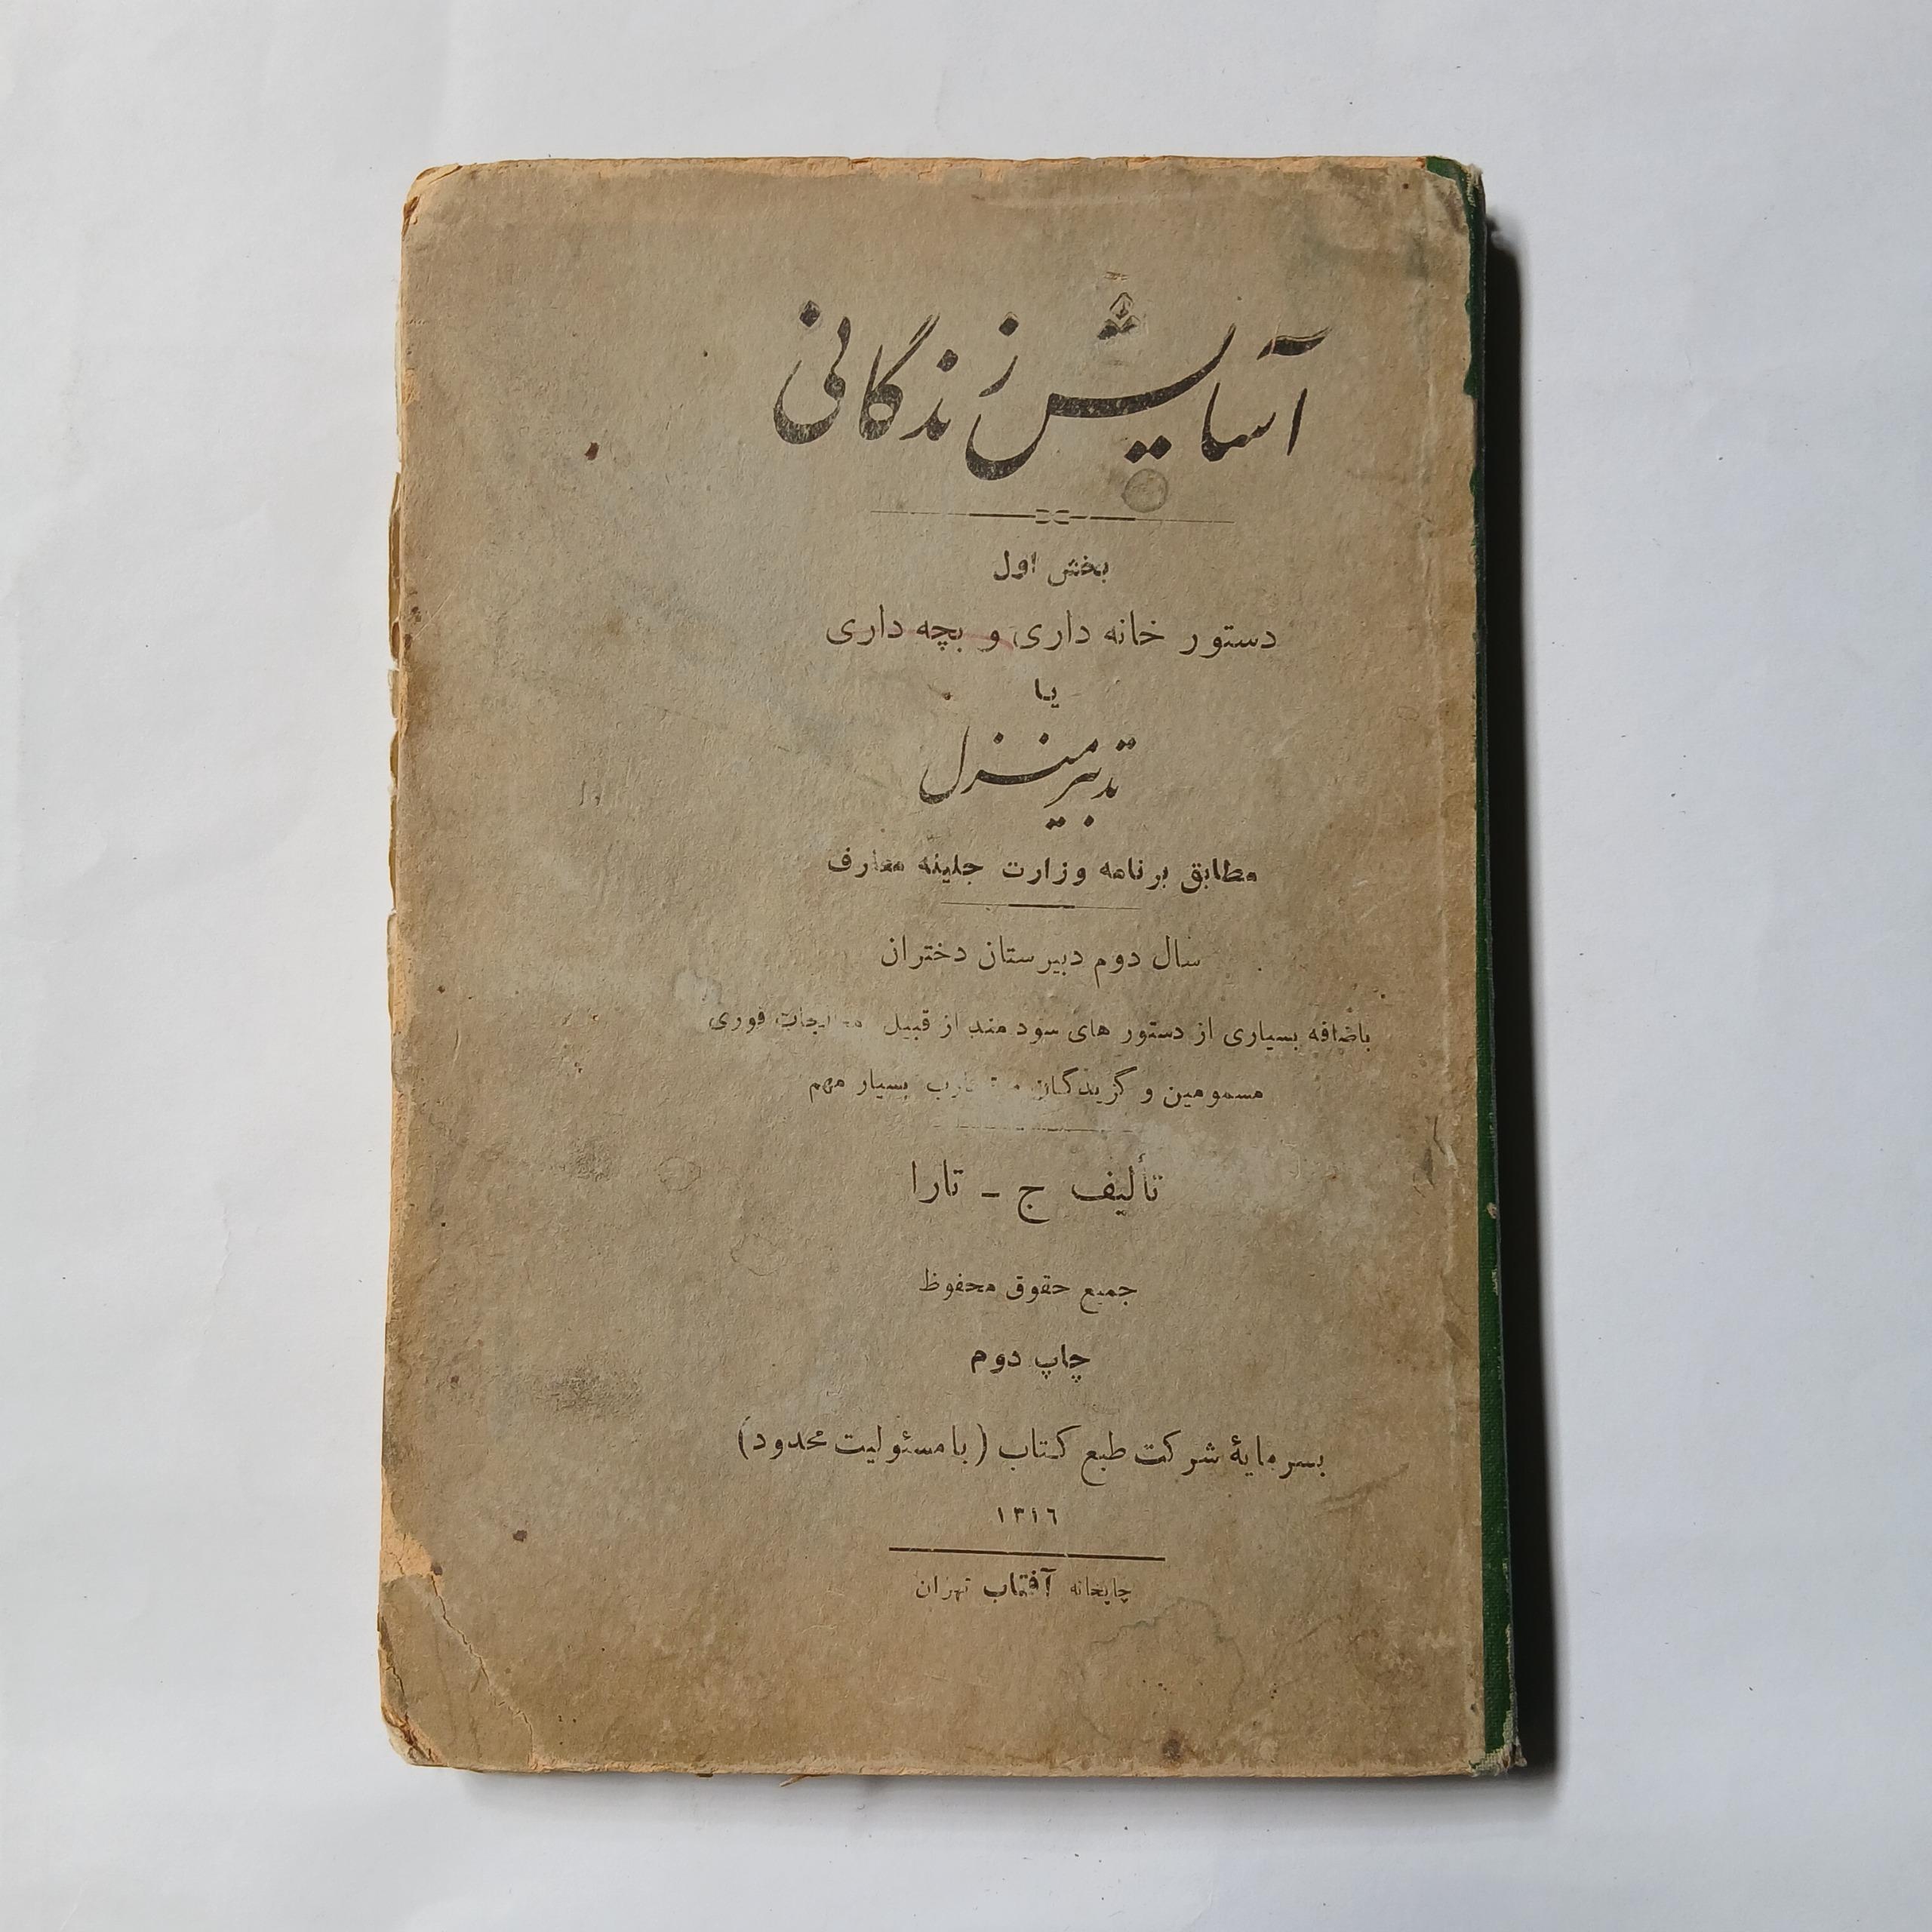 آسایش زندگانی
بخش اول
دستور خانه داری و بچه داری
یا
تدبیر منزل
مطابق برنامه وزارت جلیله معارف
سال دوم دبیرستان دختران
باضافه بسیاری از دستور های سودمند از قبیل معالجات فوری
مسمومین و گزیدگان بسیار مهم
تألیف ج - تارا
جمیع حقوق محفوظ
چاپ دوم
بسرمایهٔ شرکت طبع کتاب (بامسئولیت محدود)
۱۳۱۶
چاپخانه آفتاب تهران